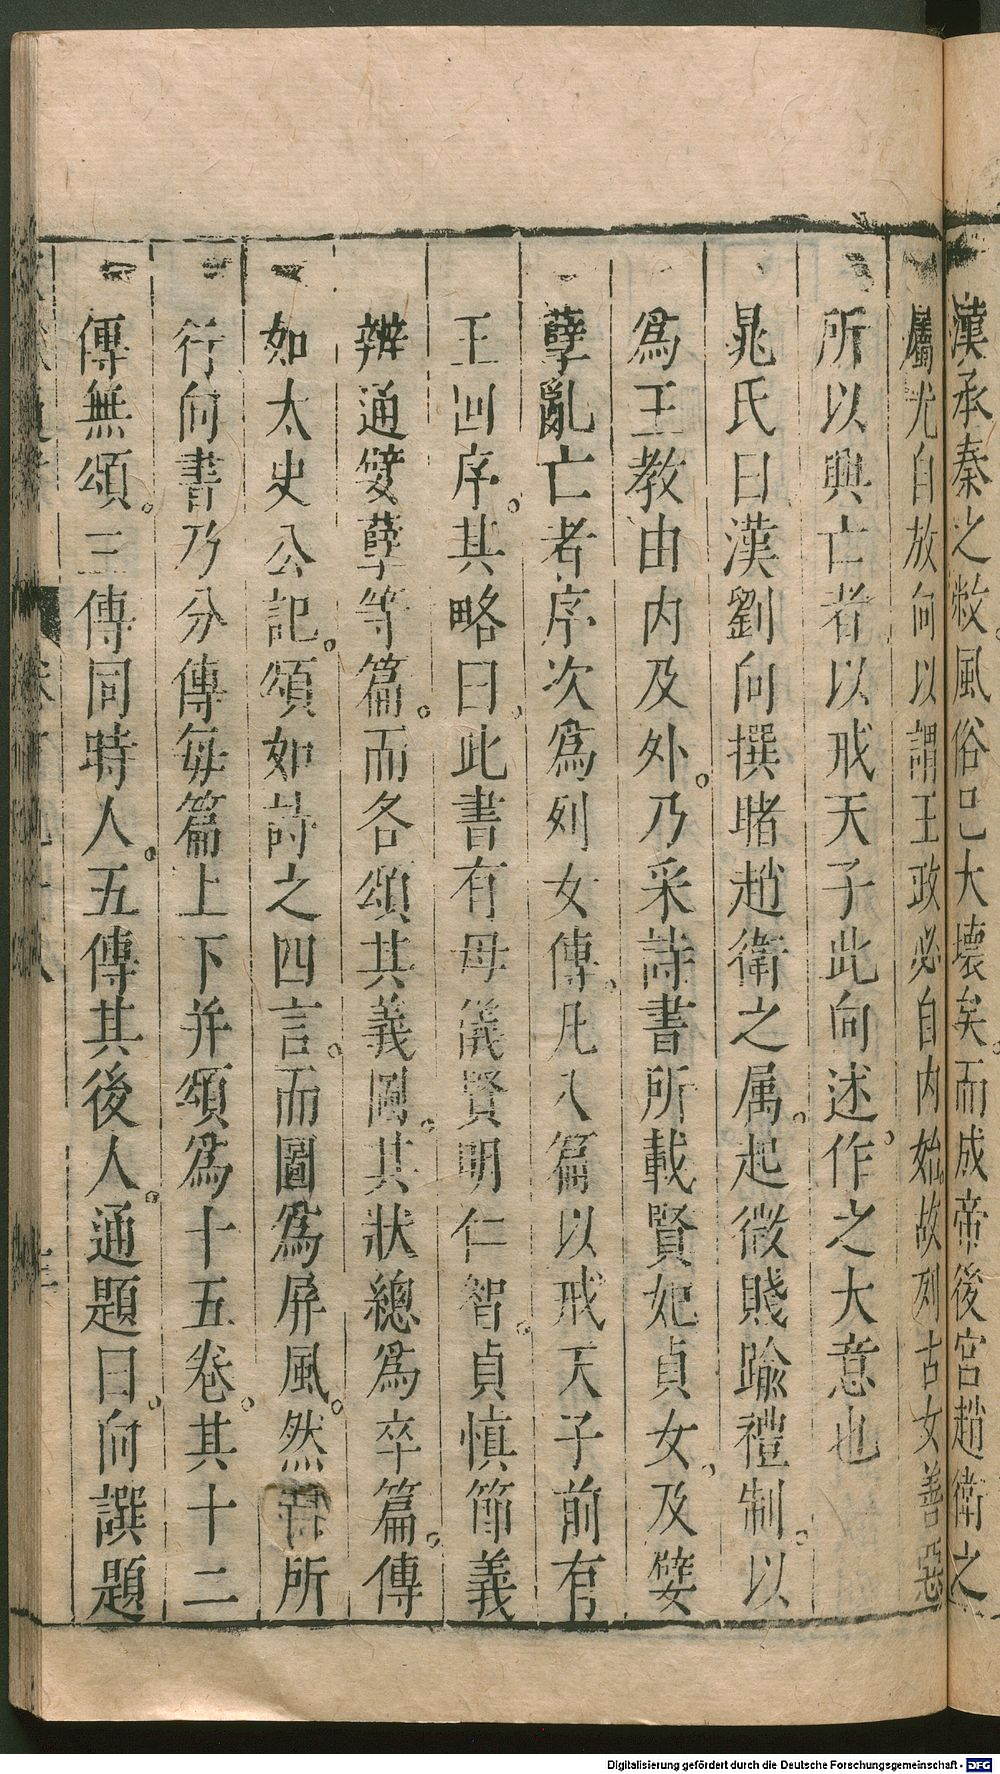 漢承秦之敝。風俗已大壞矣。而成帝後宮趙衛之
屬尤自放向以謂王政必自内始。故列古女善惡
所以興亡者以戒天子此向述作。之大意也
晁氏曰漢劉向撰睹趙衛之属。起微賤踰禮制。以
為王教由内及外。乃采詩書所載賢妃貞女。及嬖
孽亂亡者序次為列女傳。凡八篇以戒天子前有
王回序。其略曰。此書有母儀賢明仁智。貞慎節義
辨通嬖孽等篇。而各頌其義圖。其狀總為卒篇。傳
如太史公記。頌如詩之四言。而圖為屏風。然 所
行向書乃分傳每篇上下并頌為十五卷。其十二
傳無頌。三傳同時人。五傳其後人。通題曰。向譔題
Digitalisierung gefördert durch die Deutsche Forschungsgemeinschaft - DFG